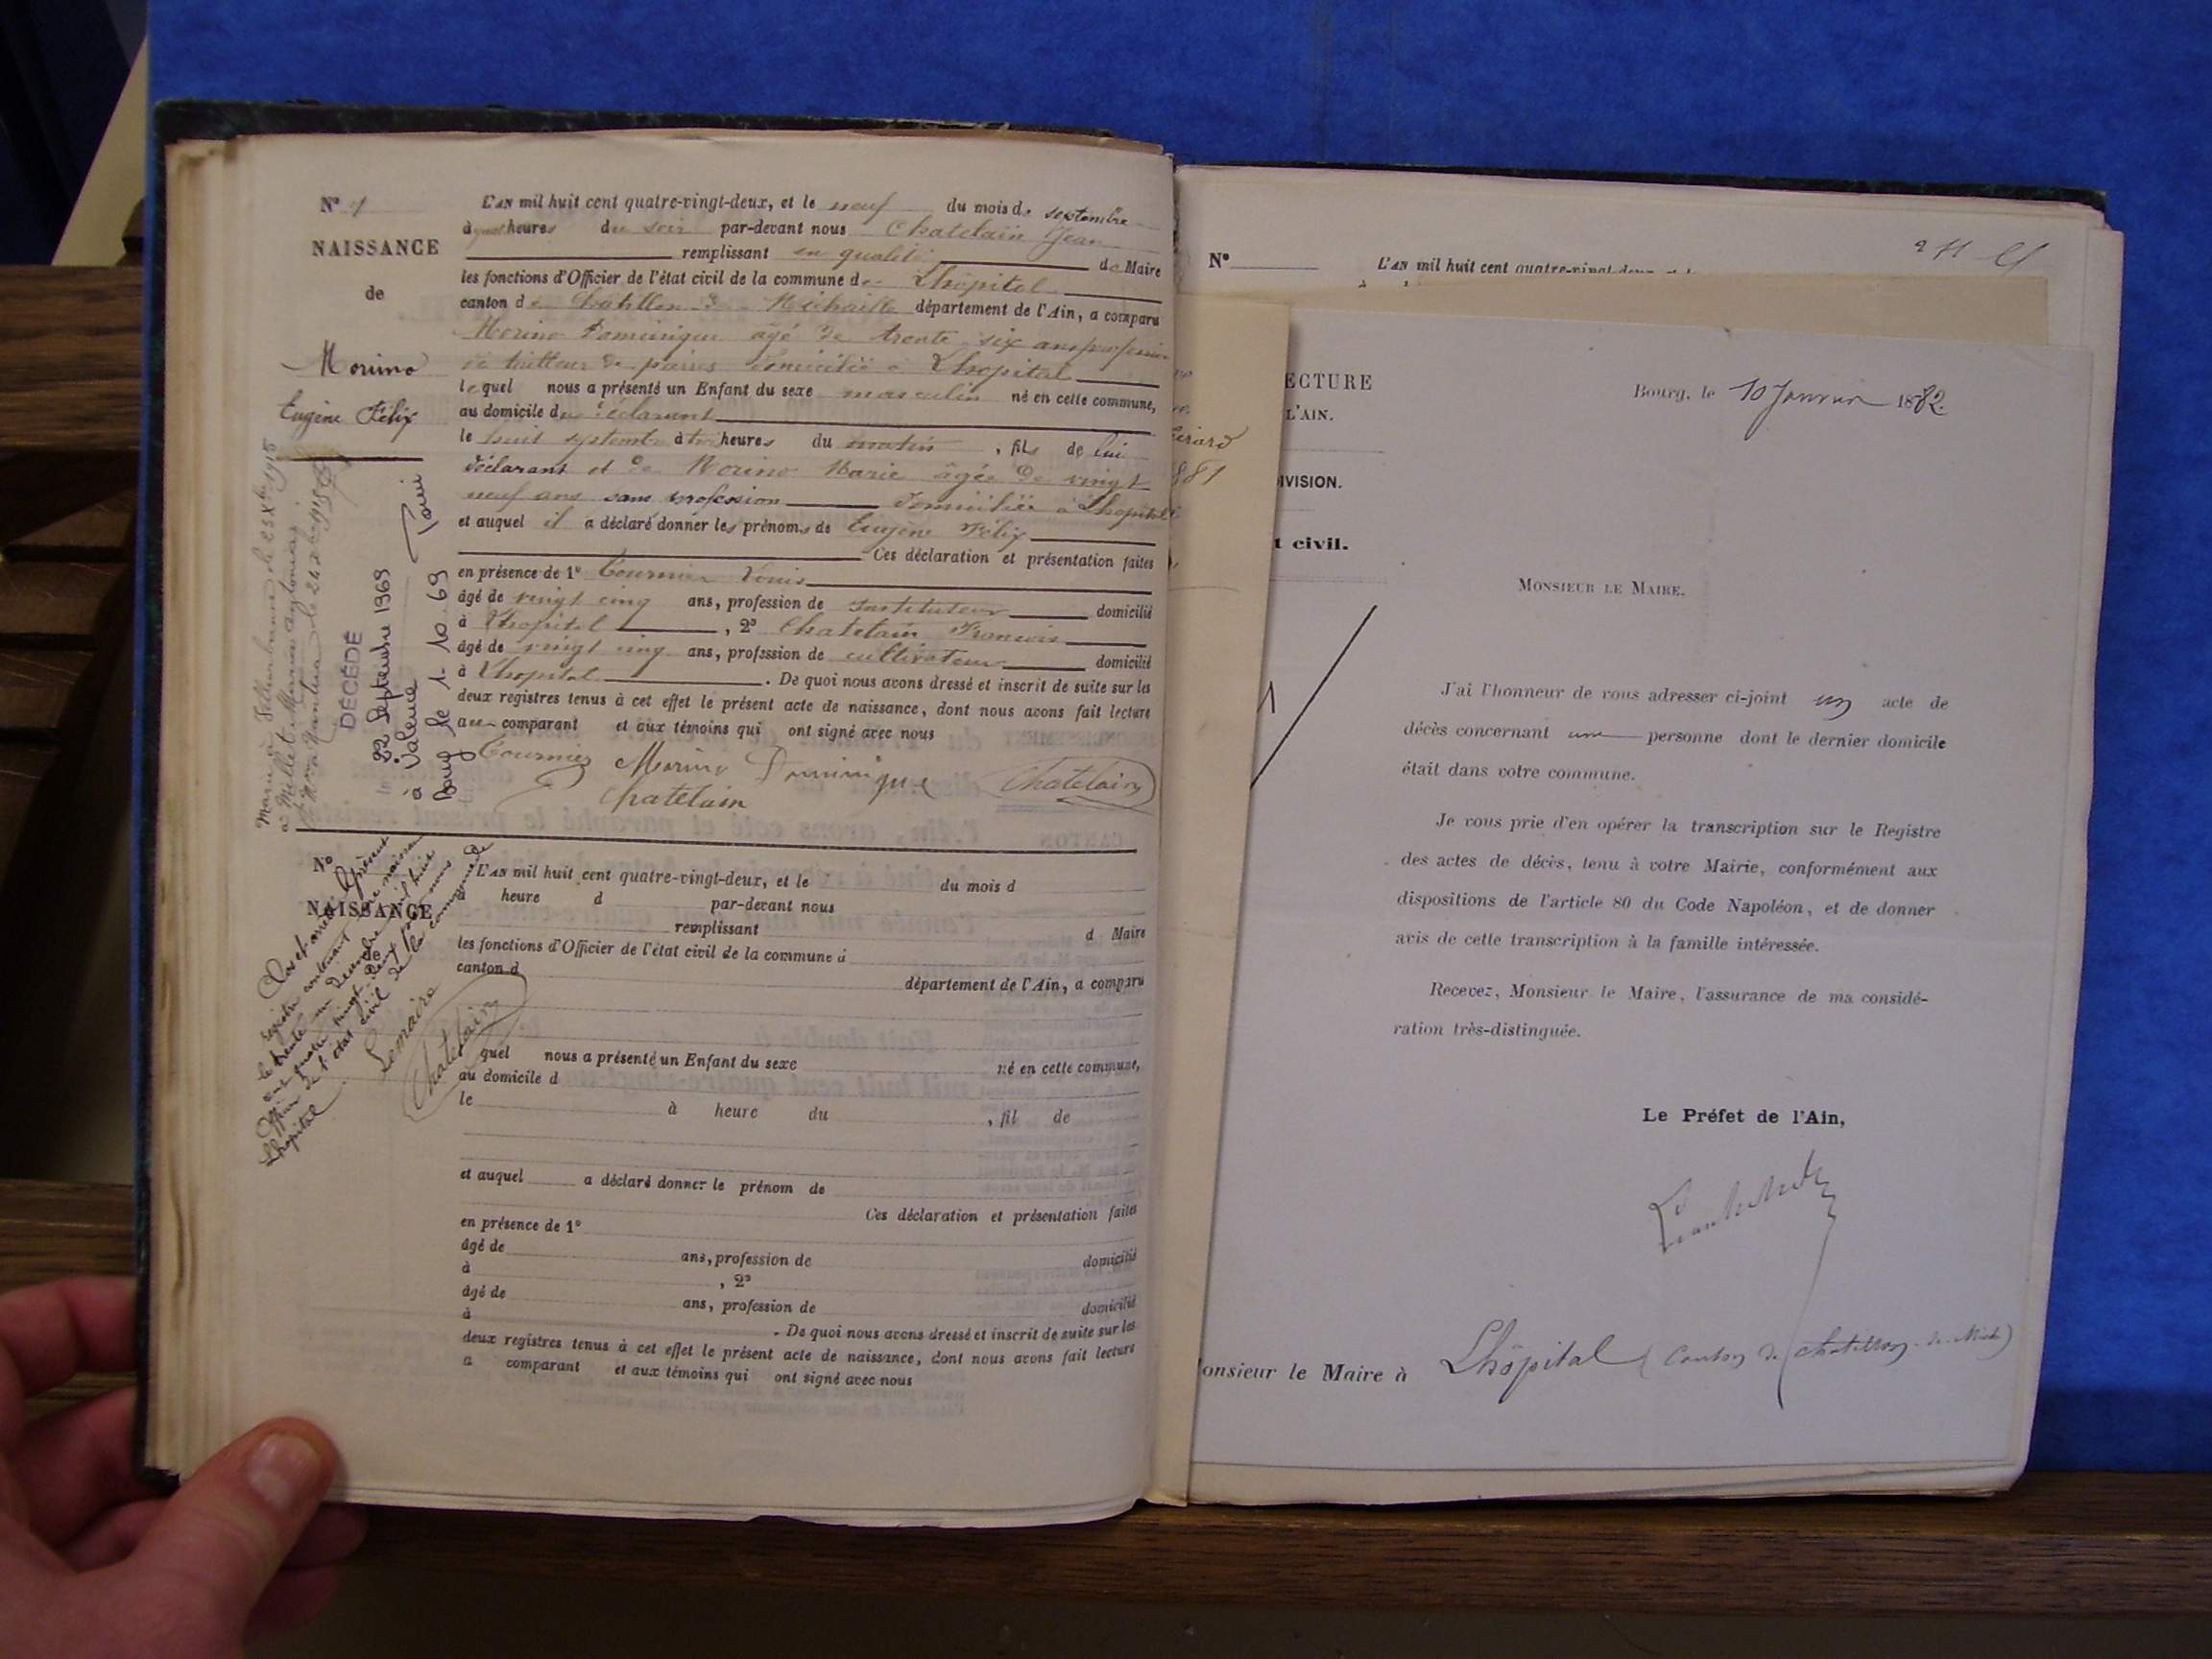 N° 1
NAISSANCE
de
Morino
Eugène Félix
L'AN mil huit cent quatre-vingt-deux, et le neuf du mois de septembre
à heures du soir par-devant nous Chatelain Jean
remplissant en qualité de Maire
les fonctions d'Officier de l'état civil de la commune de Lhôpital
canton de Chatillon de Michaille département de l'Ain, a comparu
Morino Dominique âgé de trente six ans profession
de tailleur de pierres domicilié à Lhopital
lequel nous a présenté un Enfant du sexe masculin né en cette commune,
au domicile du déclarant
le huit septembre à heures du matin, fils de lui
déclarant et de Morino Marie âgée de vingt
neuf ans sans profession domiciliée à Lhopital
et auquel il a déclaré donner les prénoms de Eugène Félix
Ces déclaration et présentation faites
en présence de 1° Tournier Louis
âgé de vingt cinq ans, profession de instituteur domicilié
à Lhopital, 2° Chatelain François
âgé de vingt cinq ans, profession de cultivateur domicilié
à Lhopital. De quoi nous avons dressé et inscrit de suite sur les
deux registres tenus à cet effet le présent acte de naissance, dont nous avons fait lecture
au comparant et aux témoins qui ont signé avec nous
Tournier Morino Dominique Chatelain
Chatelain
DÉCÉDÉ
le 22 Septembre 1969
à Valence
Bourg le 1-10-69
N°
NAISSANCE
de
Clos et arrêté le présent
registre contenant une naissance
le trente un Décembre mil huit
cent quatre vingt deux par nous
officier de l'état civil de la commune de
Lhopital
Le maire
Chatelain
L'AN mil huit cent quatre-vingt-deux, et le du mois d
à heure d par-devant nous
remplissant d Maire
les fonctions d'Officier de l'état civil de la commune d
canton d département de l'Ain, a comparu
quel nous a présenté un Enfant du sexe né en cette commune,
au domicile d
le à heure du , fil de
et auquel a déclaré donner le prénom de
Ces déclaration et présentation faites
en présence de 1°
âgé de ans, profession de domicilié
à , 2°
âgé de ans, profession de domicilié
à . De quoi nous avons dressé et inscrit de suite sur les
deux registres tenus à cet effet le présent acte de naissance, dont nous avons fait lecture
a comparant et aux témoins qui ont signé avec nous
N° L'AN mil huit cent quatre-vingt-deux
ECTURE
L'AIN.
IVISION.
t civil.
Bourg, le 10 Janvier 1882.
MONSIEUR LE MAIRE.
J'ai l'honneur de vous adresser ci-joint un acte de
décès concernant une personne dont le dernier domicile
était dans votre commune.
Je vous prie d'en opérer la transcription sur le Registre
des actes de décès, tenu à votre Mairie, conformément aux
dispositions de l'article 80 du Code Napoléon, et de donner
avis de cette transcription à la famille intéressée.
Recevez, Monsieur le Maire, l'assurance de ma considé-
ration très-distinguée.
Le Préfet de l'Ain,
onsieur le Maire à Lhôpital (Canton de Chatillon-de-Mich)